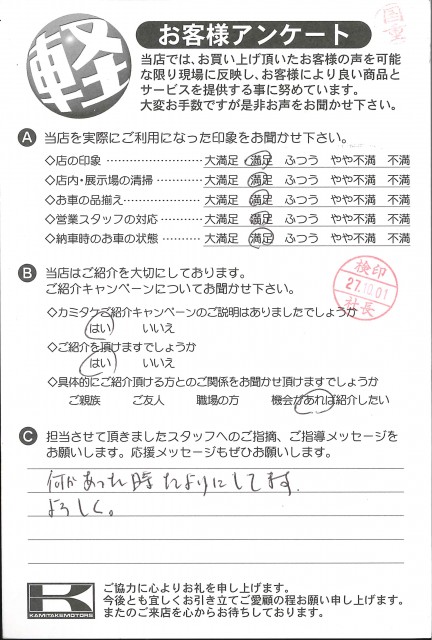 軽
お客様アンケート
当店では、お買い上げ頂いたお客様の声を可能
な限り現場に反映し、お客様により良い商品と
サービスを提供する事に努めています。
大変お手数ですが是非お声をお聞かせ下さい。
A 当店を実際にご利用になった印象をお聞かせ下さい。
◇店の印象 ………………… 大満足 満足 ふつう やや不満 不満
◇店内・展示場の清掃 ………… 大満足 満足 ふつう やや不満 不満
◇お車の品揃え ……………… 大満足 満足 ふつう やや不満 不満
◇営業スタッフの対応 ………… 大満足 満足 ふつう やや不満 不満
◇納車時のお車の状態 ………… 大満足 満足 ふつう やや不満 不満
B 当店はご紹介を大切にしております。
ご紹介キャンペーンについてお聞かせ下さい。
検印
27.10.01
社長
◇カミタケご紹介キャンペーンのご説明はありましたでしょうか
はい いいえ
◇ご紹介を頂けますでしょうか
はい いいえ
◇具体的にご紹介頂ける方とのご関係をお聞かせ頂けますでしょうか
ご親族 ご友人 職場の方 機会があれば紹介したい
C 担当させて頂きましたスタッフへのご指摘、ご指導メッセージを
お願いします。応援メッセージもぜひお願いします。
何かあった時たよりにしてます。
よろしく。
K
KAMITAKEMOTORS
ご協力に心よりお礼を申し上げます。
今後とも宜しくお引き立てご愛顧の程お願い申し上げます。
またのご来店を心からお待ちしております。